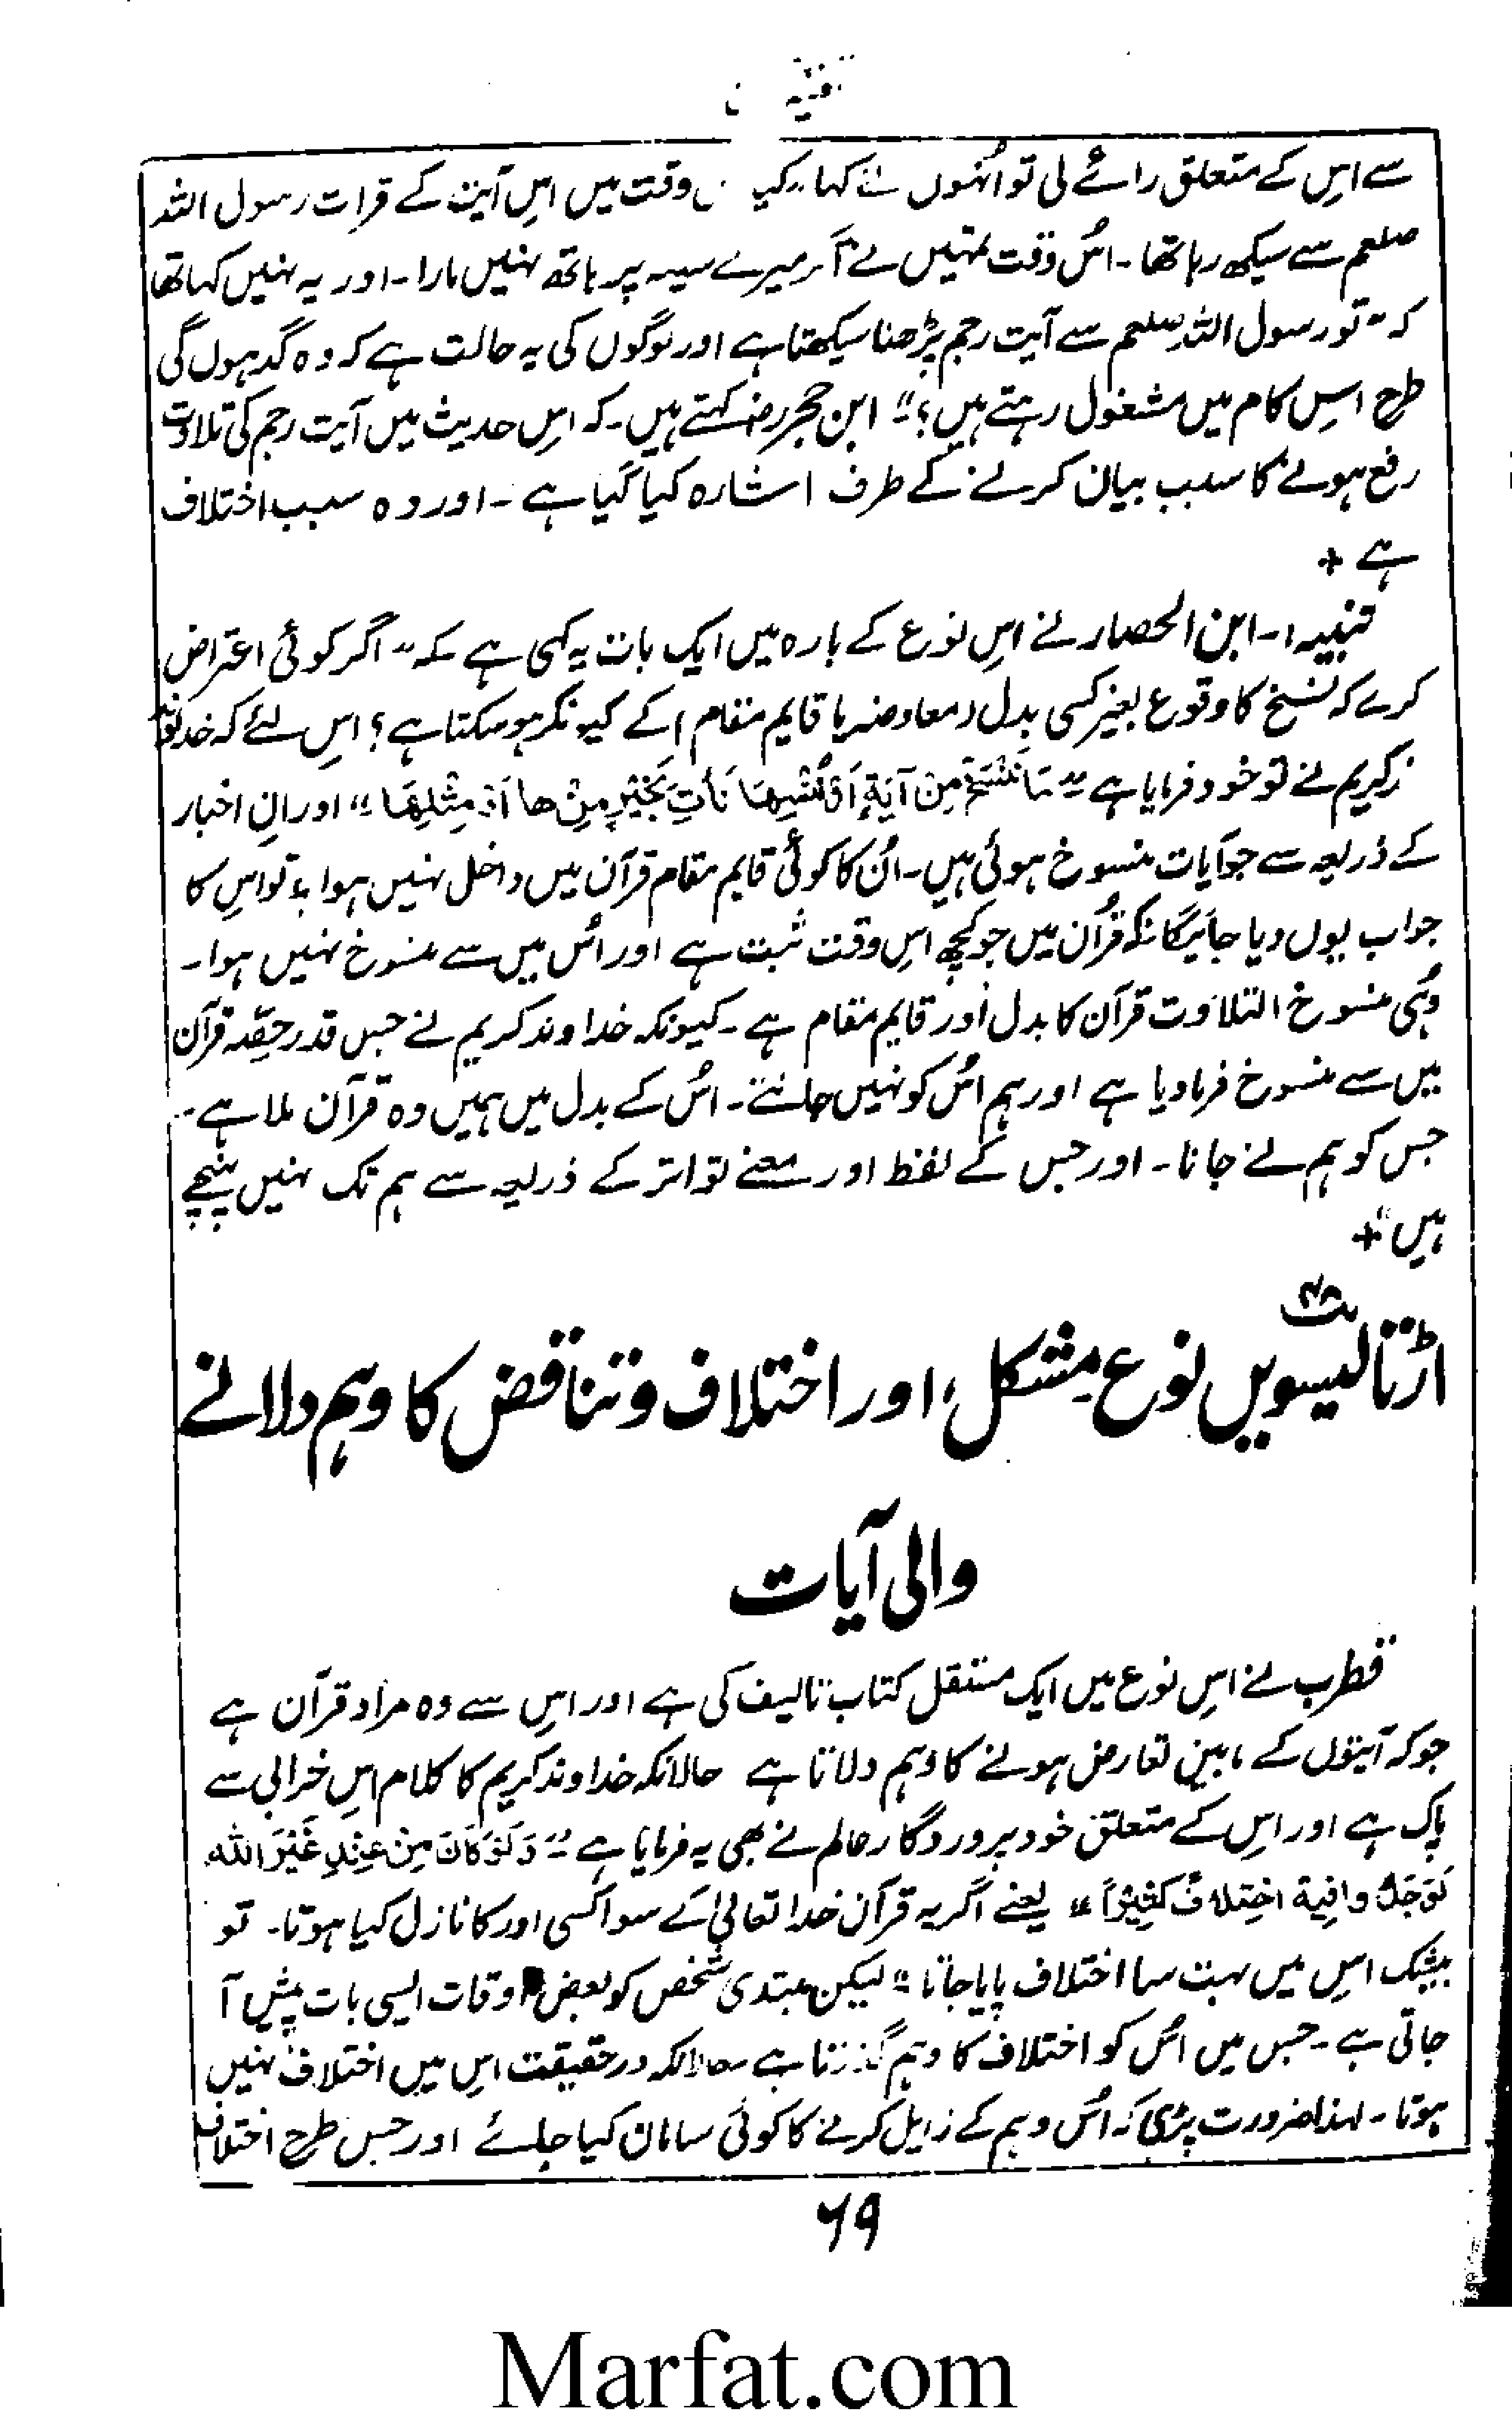 سے اس کے متعلق رائے لی تو اُنہوں نے کہا وقت میں اسِ آیت کے قرات رسول اللہ
صلعم سے سیکھ رہا تھا۔ اُس وقت تمہیں نے آکر میرے سینہ پر ہاتھ نہیں مارا۔ اور یہ نہیں کہا تھا
کہ "تو رسول اللہ صلعم سے آیت رجم پڑھنا سیکھتا ہے اور لوگوں کی یہ حالت ہے کہ وہ گدہوں کی
طرح اسِ کام میں مشغول رہتے ہیں؟" ابن حجررض کہتے ہیں۔ کہ اسِ حدیث میں آیت رجم کی تلاوت
رفع ہونے کا سبب بیان کرنے کے طرف اشارہ کیا گیا ہے۔ اور وہ سبب اختلاف
ہے +
تنبیہ ۱۔ ابن الحصار نے اسِ نوع کے بارہ میں ایک بات یہ کہی ہے کہ "اگر کوئی اعتراض
کرے کہ نسخ کا وقوع بغیر کسی بدل (معاوضہ یا قایم مقام) کے کیونکر ہو سکتا ہے؟ اسِ لئے کہ خداوند
کریم نے تو خود فرمایا ہے "مَا نَنْسَخْ مِنْ آيَةٍ اَوْ نُنْسِهَا نَأْتِ بِخَيْرٍ مِنْ هَا اَوْ مِثْلِهَا" اور انِ اخبار
کے ذریعہ سے جو آیات منسوخ ہوئی ہیں۔ اُن کا کوئی قایم مقام قرآن میں داخل نہیں ہوا؟ تو اسِ کا
جواب یوں دیا جائیگا کہ قرآن میں جو کچھ اسِ وقت ثبت ہے اور اُس میں سے منسوخ نہیں ہوا۔
وہی منسوخ التلاوت قرآن کا بدل اور قایم مقام ہے۔ کیونکہ خداوند کریم نے جس قدر حِصّہ قرآن
میں سے منسوخ فرما دیا ہے اور ہم اُس کو نہیں جانتے۔ اُس کے بدل میں ہمیں وہ قرآن ملا ہے۔
جس کو ہم نے جانا۔ اور جس کے لفظ اور معنے تواتر کے ذریعہ سے ہم تک نہیں پہنچے
ہیں" +
اڑتالیسویں نوع مشکل، اور اختلاف و تناقض کا وہم دلانے
والی آیات
قطرب نے اسِ نوع میں ایک مستقل کتاب تالیف کی ہے اور اسِ سے وہ مراد قرآن ہے
جو کہ آیتوں کے مابین تعارض ہونے کا وہم دلاتا ہے حالانکہ خداوند کریم کا کلام اسِ خرابی سے
پاک ہے اور اسِ کے متعلق خود پروردگار عالم نے بھی یہ فرمایا ہے "وَلَوْ كَانَ مِنْ عِنْدِ غَيْرَ الله
لَوَجَدُ وافِية اختِلافً كَثِيْراً" یعنے اگر یہ قرآن خدا تعالیٰ کے سوا کسی اور کا نازل کیا ہوتا۔ تو
بیشک اسِ میں بہت سا اختلاف پایا جاتا" لیکن مبتدی شخص کو بعض اوقات ایسی بات پیش آ
جاتی ہے۔ جس میں اُس کو اختلاف کا وہم گذرتا ہے حالانکہ درحقیقت اسِ میں اختلاف نہیں
ہوتا۔ لہذا ضرورت پڑی کہ اُس وہم کے زایل کرنے کا کوئی سامان کیا جائے اور جس طرح اختلاف
۶۹
Marfat.com